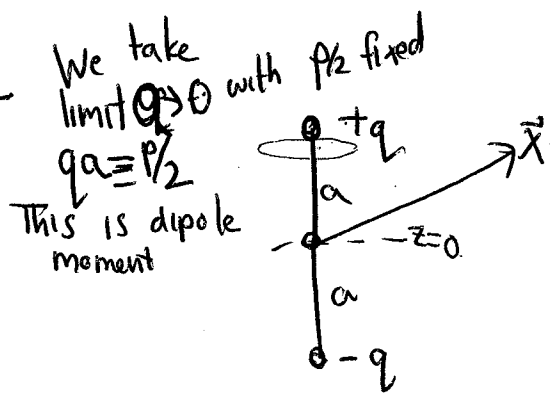 We take
limit q→0 with p/2 fixed
qa≡p/2
This is dipole
moment
+q
X⃗
a
z=0
a
-q